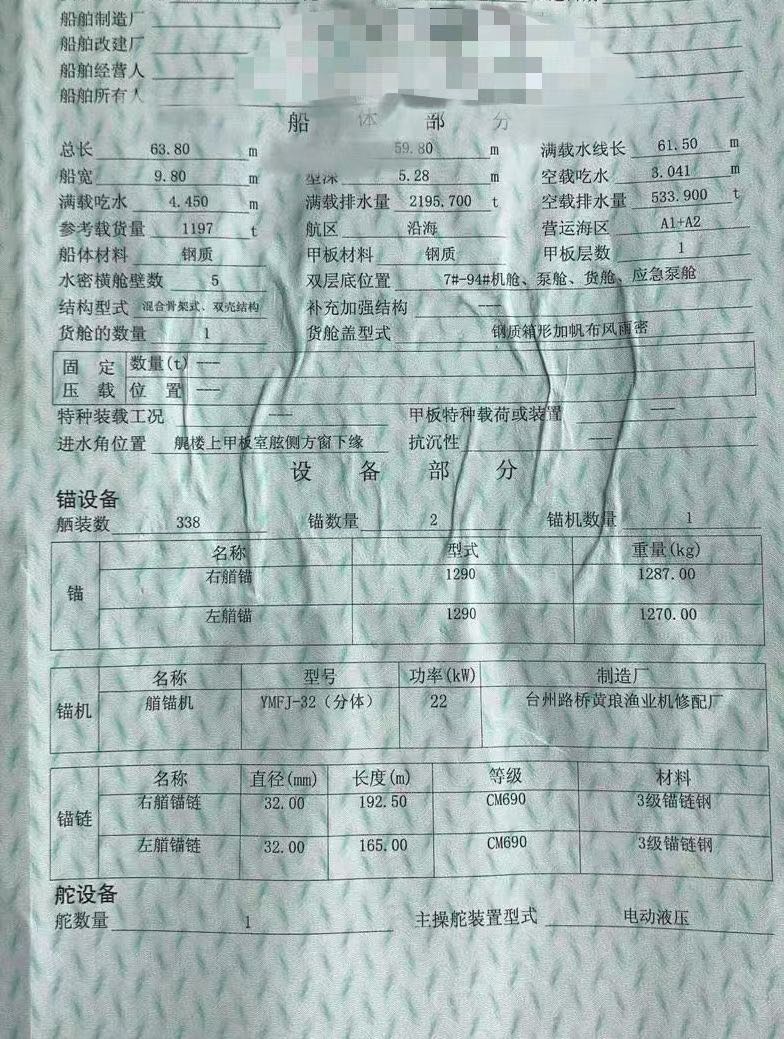 船舶制造厂
船舶改建厂
船舶经营人
船舶所有人
船 体 部 分
总长 63.80 m 59.80 m 满载水线长 61.50 m
船宽 9.80 m 型深 5.28 m 空载吃水 3.041 m
满载吃水 4.450 m 满载排水量 2195.700 t 空载排水量 533.900 t
参考载货量 1197 t 航区 沿海 营运海区 A1+A2
船体材料 钢质 甲板材料 钢质 甲板层数 1
水密横舱壁数 5 双层底位置 7#-94#机舱、泵舱、货舱、应急泵舱
结构型式 混合骨架式、双壳结构 补充加强结构 ---
货舱的数量 1 货舱盖型式 钢质箱形加帆布风雨密
固 定 数量(t) ---
压 载 位 置 ---
特种装载工况 --- 甲板特种载荷或装置 ---
进水角位置 艉楼上甲板室舷侧方窗下缘 抗沉性 ---
设 备 部 分
锚设备
舾装数 338 锚数量 2 锚机数量 1
锚 名称 型式 重量(kg)
右艏锚 1290 1287.00
左艏锚 1290 1270.00
锚机 名称 型号 功率(kW) 制造厂
艏锚机 YMFJ-32（分体） 22 台州路桥黄琅渔业机修配厂
锚链 名称 直径(mm) 长度(m) 等级 材料
右艏锚链 32.00 192.50 CM690 3级锚链钢
左艏锚链 32.00 165.00 CM690 3级锚链钢
舵设备
舵数量 1 主操舵装置型式 电动液压